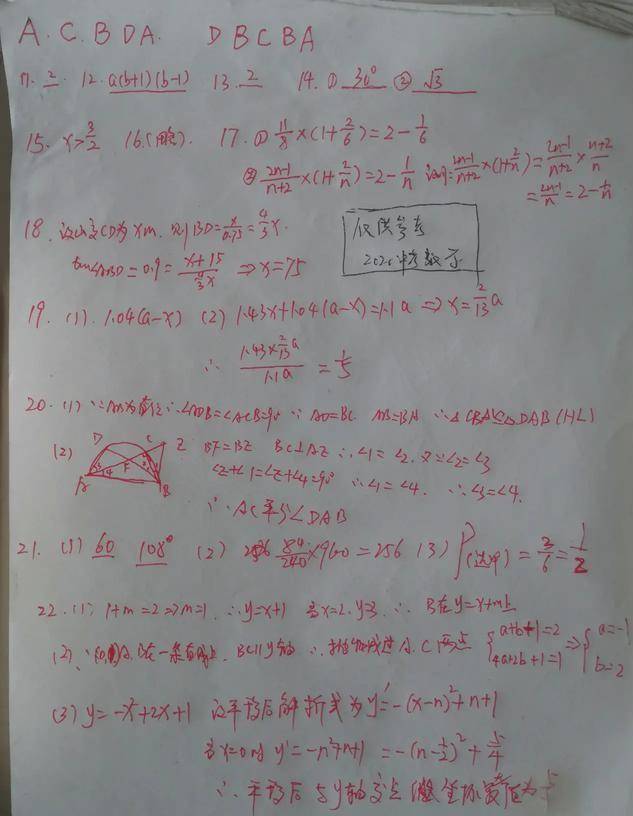 A. C. B D A.   D B C B A
11. 2   12. a(b+1)(b-1)   13. 2   14. ① 30° ② √3
15. x>3/2   16. (略).   17. ① 11/8×(1+2/6)=2-1/6
② (2n-1)/(n+2)×(1+2/n)=2-1/n   证明: (2n-1)/(n+2)×(1+2/n)=(2n-1)/(n+2)×(n+2)/n
=(2n-1)/n=2-1/n
18. 设山高CD为xm. 则BD=x/0.75=4/3x.
仅供参考
2020中考数学
tan∠ABD=0.9=(x+15)/(4/3x) ⇒x=75
19. (1). 1.04(a-x)   (2) 1.43x+1.04(a-x)=1.1a ⇒x=2/13a
∴ (1.43×2/13a)/(1.1a)=1/5
20. (1) ∵AB为直径∴∠ADB=∠ACB=90° ∵AD=BC AB=BA ∴△CBA≌△DAB(HL)
(2) D C E 3 4 F 2 1 A B BF=BE BC⊥AE ∴∠1=∠2. 又∠2=∠3
∠E+∠1=∠E+∠4=90° ∴∠1=∠4. ∴∠3=∠4.
∴AC平分∠DAB
21. (1) 60 108° (2) 84/240×960=256 (3) P(选甲)=3/6=1/2
22. (1) 1+m=2⇒m=1. ∴y=x+1 当x=2. y=3 ∴B在y=x+m上
(2) ∵(0,1)A.B在一条直线上. BC∥y轴 ∴抛物线过A.C两点 {a+b+1=2 4a+2b+1=1 ⇒{a=-1 b=2
(3) y=-x²+2x+1 设平移后解析式为y'=-(x-n)²+n+1
当x=0时 y'=-n²+n+1=-(n-1/2)²+5/4
∴平移后与y轴交点纵坐标最大值为5